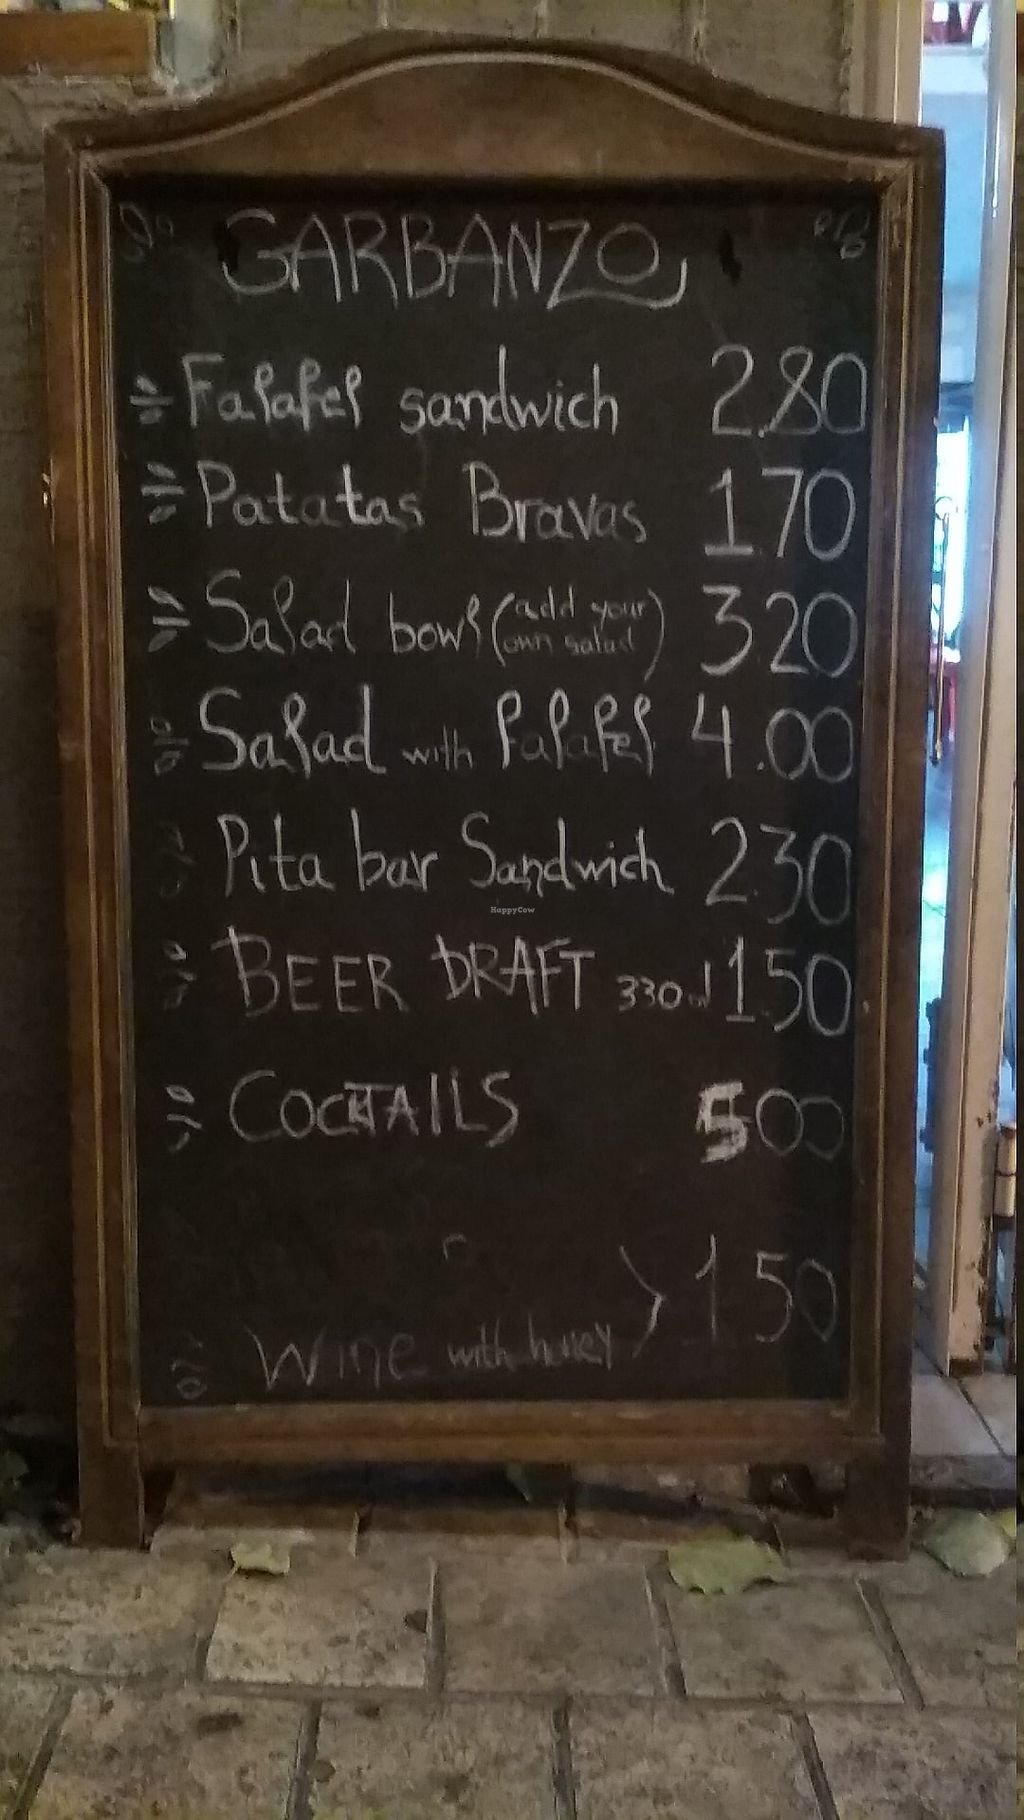 GARBANZO
Falafel sandwich 2.80
Patatas Bravas 1.70
Salad bowl (add your own salad) 3.20
Salad with falafel 4.00
Pita bar Sandwich 2.30
BEER DRAFT 330ml 1.50
COCKTAILS 500
1 50
Wine with honey
HappyCow